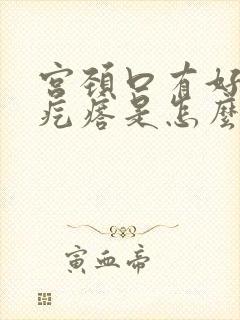 宫颈口有好
疙瘩是怎麼
寅血帝